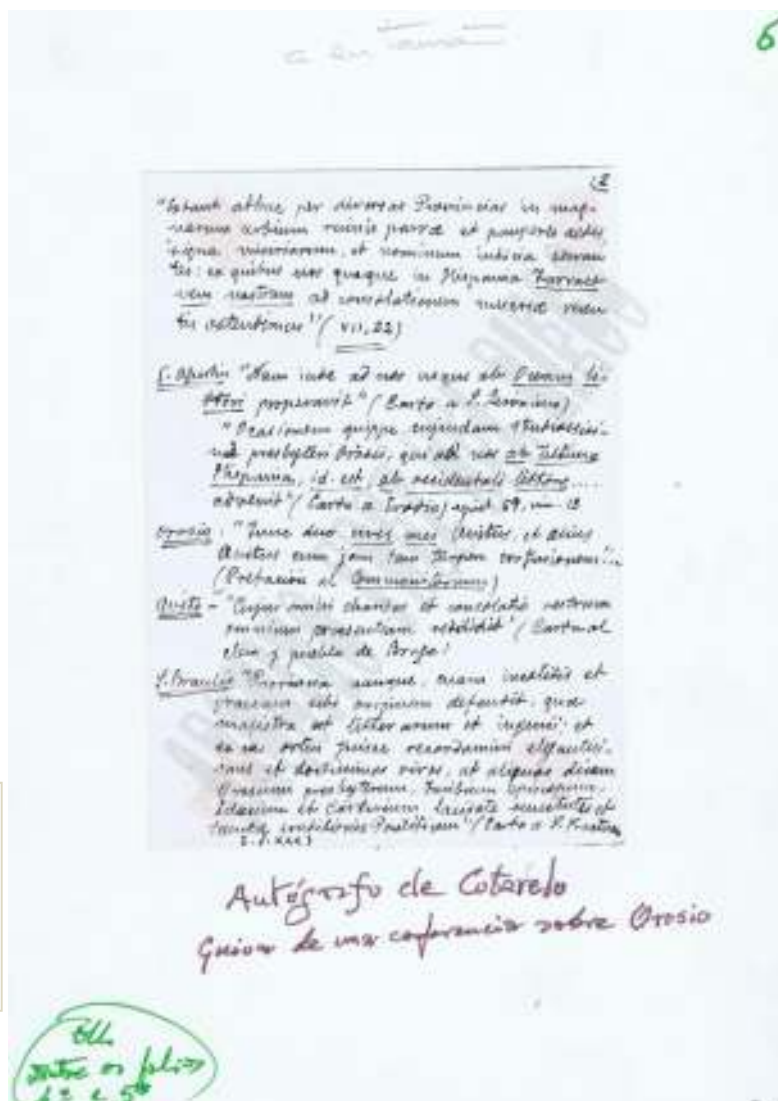 6
2
"Extant adhuc per diversas Provincias in mag-
narum urbium ruinis parvæ et pauperes sedes,
signa miseriarum, et nominum indicia servan
tes: ex quibus nos quoque in Hispania Tarraco
nem nostram ad consolationem miseriæ recen
tis ostendimus" (VII, 22)
S. Agustín "Nam inde ad nos usque ab Oceani li-
ttore properavit" (Carta a S. Jeronimo)
"Ocasionem quippe cujusdam studiosissi-
mi presbyteri Orosii, qui ad nos ab ultima
Hispania, id est, ab occidentali littore....
advenit" (Carta a Evodio) 169,
Orosio: "Tunc duo cives mei Avitus, et alius
Avitus cum jam tam turpem confusionem"...
(Prefacion al Commonitorium)
Avito - "
(Carta al
clero y pueblo de Braga)
S. Braulio "Provincia namque, quam incolitis et
græcam sibi originem defendit, quæ
magistra est litterarum et ingenii; et
ex ea ortos fuisse recordamini elegantissi-
mos et doctissimos viros, ut aliquos dicam
Orosium presbyterum, Turibium Episcopum,
Idacium et Carterium laudatæ senectutis et
sanctæ eruditionis Pontificem" (Carta a S. Fructuoso
Autógrafo de Cotarelo
Guion de una conferencia sobre Orosio
Entre os folios
4º e 5º